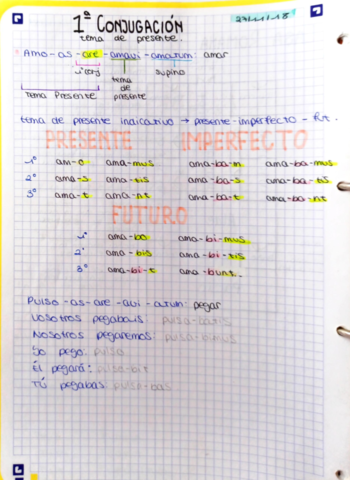 1ª CONJUGACIÓN
27/11/18
tema de presente.
Amo-as-are-amavi-amatum: amar
1ª conj
supino
tema de presente
Tema Presente
tema de presente indicativo → presente-imperfecto - fut.
PRESENTE IMPERFECTO
1º am-o ama-mus ama-ba-m ama-ba-mus
2º ama-s ama-tis ama-ba-s ama-ba-tis
3º ama-t ama-nt ama-ba-t ama-ba-nt
FUTURO
1º ama-bo ama-bi-mus
2º ama-bis ama-bi-tis
3º ama-bi-t ama-bunt.
Pulso-as-are-avi-atum: pegar
Vosotros pegabais: pulsa-batis
Nosotros pegaremos: pulsa-bimus
Yo pego: pulso
Él pegará: pulsa-bit
Tú pegabas pulsa-bas